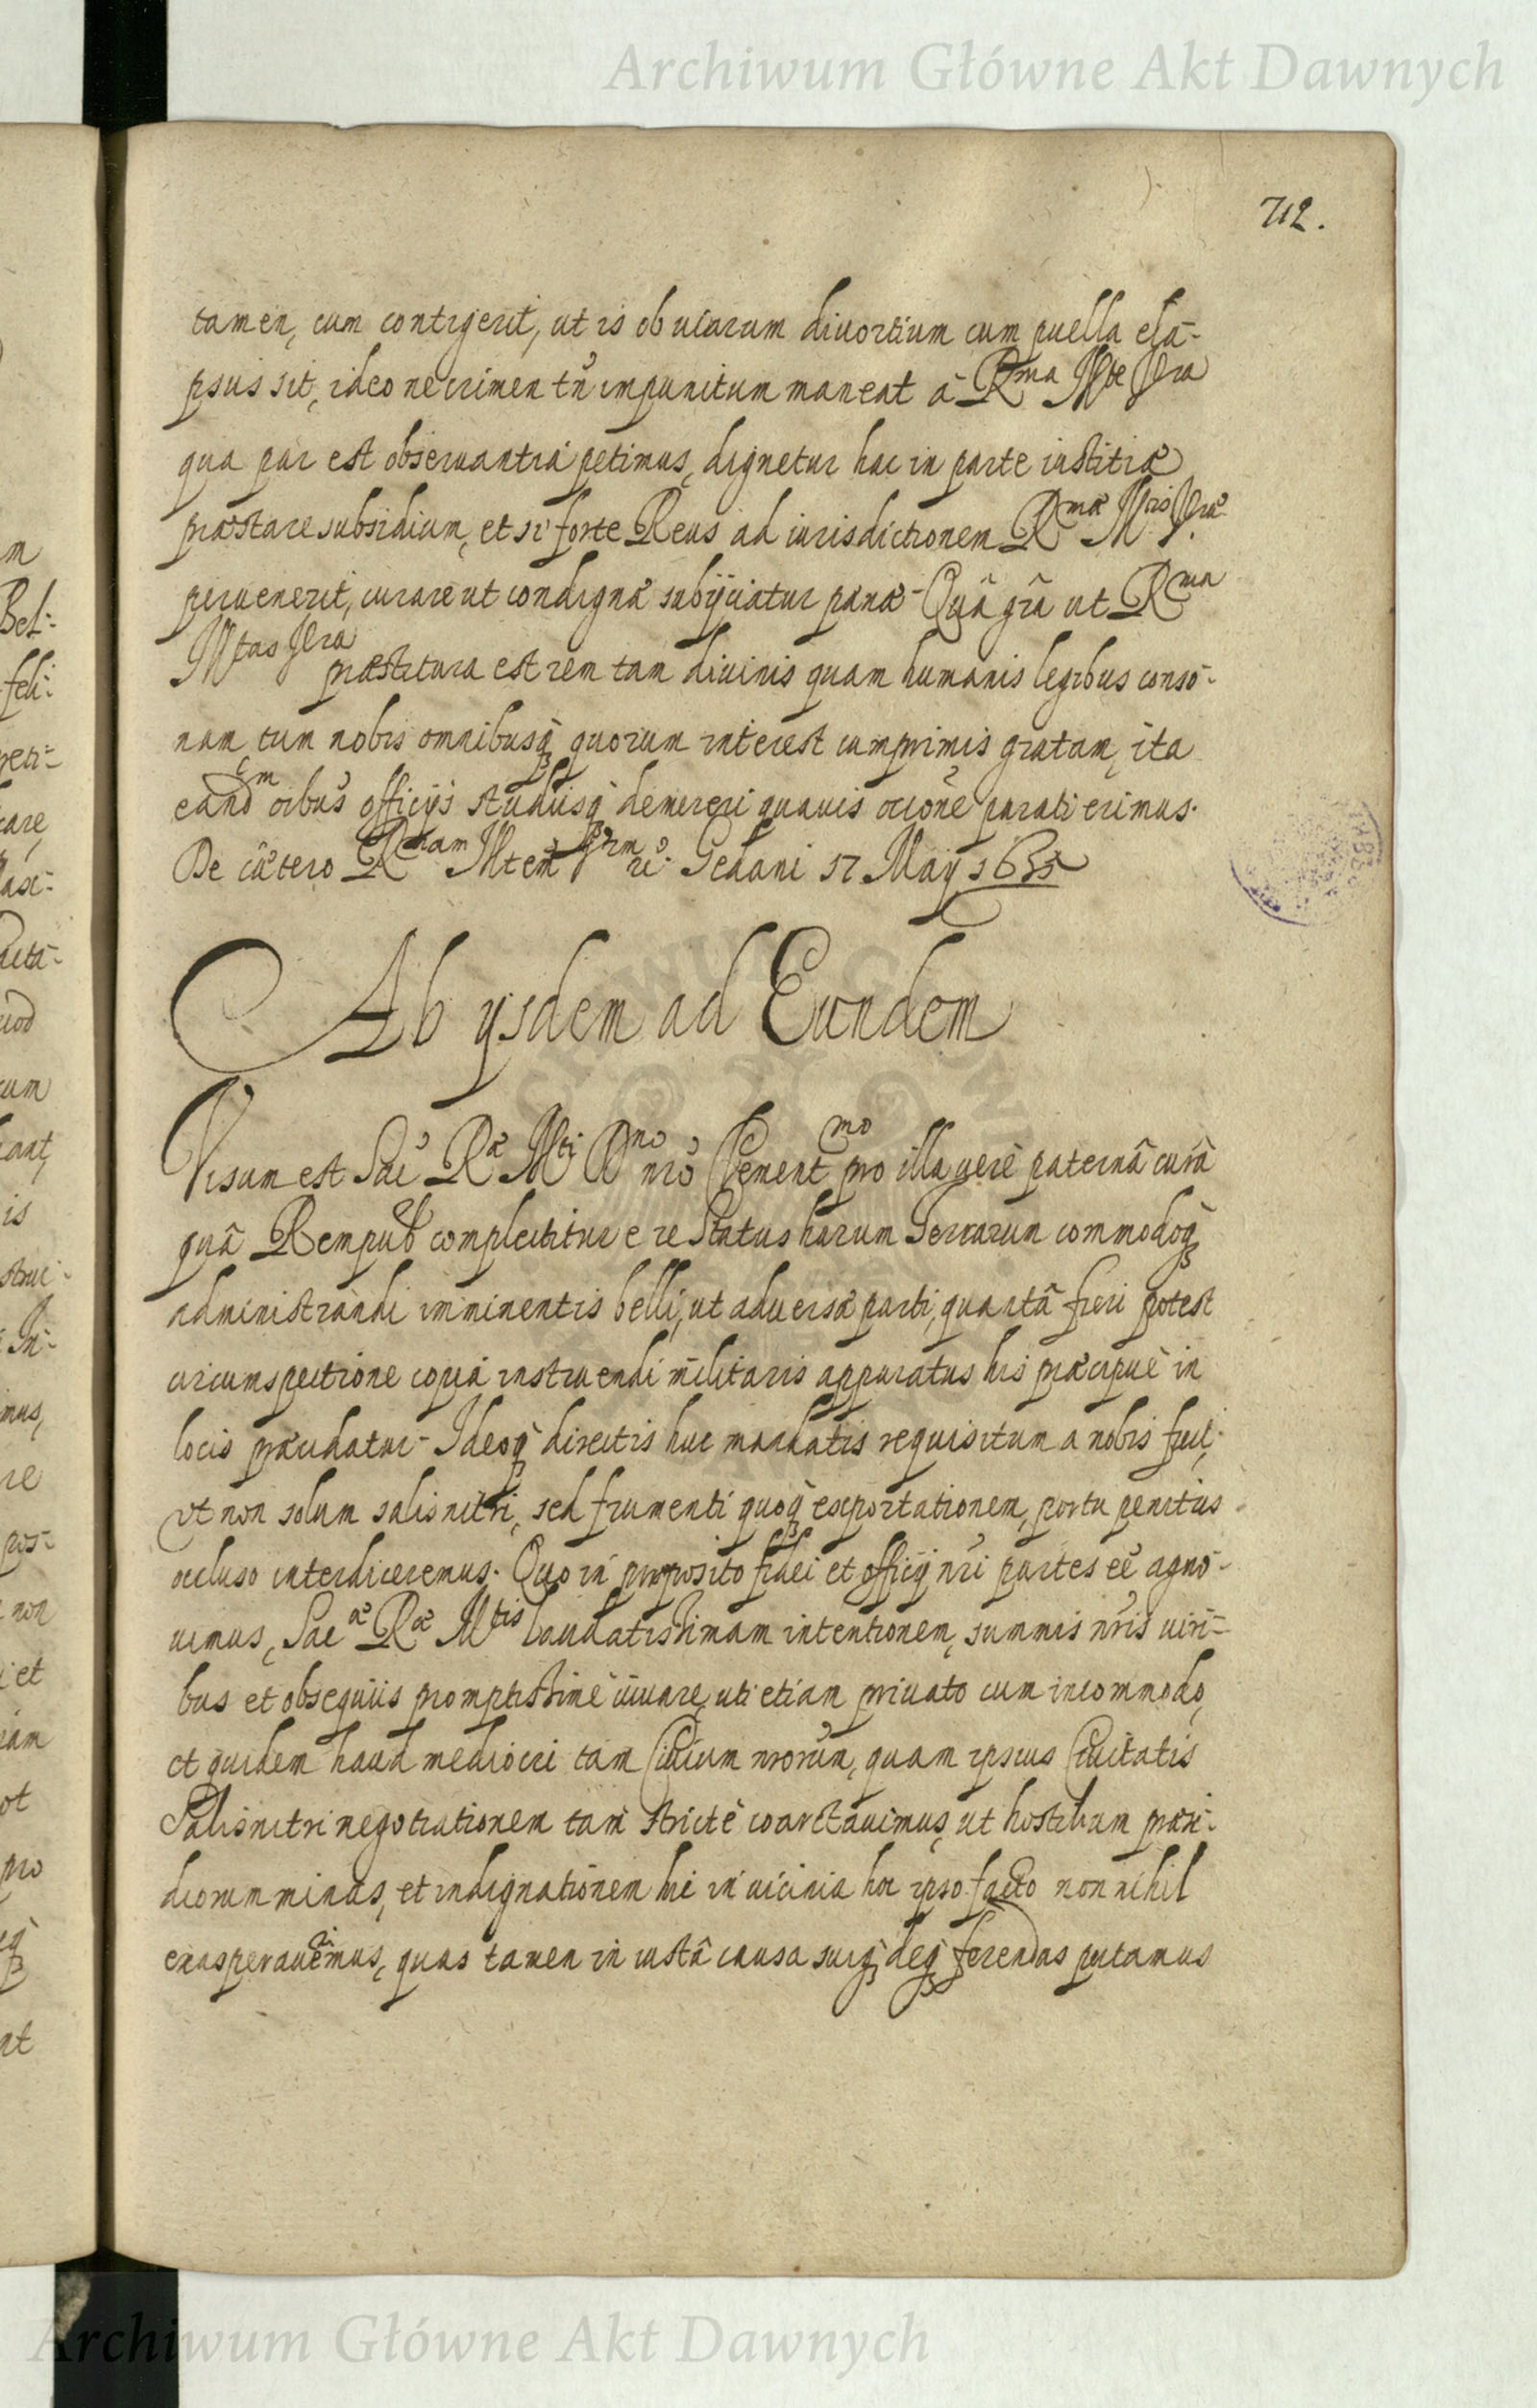 Archiwum Główne Akt Dawnych
712.
tamen, cum contigerit, ut is ob viarum divortium cum puella ela-
psus sit, ideo ne crimen tñ impunitum maneat à Rma Mte Vra
qua par est observantia petimus, dignetur hac in parte iustitiæ
præstare subsidium, et si forte Reus ad iurisdictionem Rmæ Mtis Vræ
pervenerit, curare ut condignæ subijciatur pænæ. Quâ grâ ut Rma
Mtas Vra præstitura est rem tam divinis quam humanis legibus conso-
nam tum nobis omnibusq quorum interest cumprimis gratam, ita
eand̃em oibus officijs studiisq demereri quavis ocione parati erimus.
De cætero Rmam Mtem Gedani 17 Maij 1635
Ab ijsdem ad Eundem
Visum est Sac Ræ Mti Dno nro Clement mo pro illa verè paternâ curâ
quâ Rempub complectitur e re Status harum Terrarum commodoq
administrandi imminentis belli, ut adversæ parti, quantâ fieri potest
circumspectione copia instruendi militaris apparatus his præcipuè in
locis præcidatur. Ideoq directis huc mandatis requisitum a nobis fuit,
ut non solum salisnitri, sed frumenti quoq exportationem, portu penitus
occluso interdiceremus. Quo in proposito fidei et officij nri partes eẽ agno-
vimus, Sacæ Ræ Mtis laudatissimam intentionem, summis nris viri-
bus et obsequiis promptissimè iuvare, uti etiam privato cum incommodo,
et quidem haud mediocri tam Civium nrorum, quam ipsius Civitatis
Salisnitri negotiationem tam strictè coarctavimus, ut hostilium præsi-
diorum minas, et indignationem hic in vicinia hoc ipso facto nonnihil
exasperaverimus, quas tamen in iustâ causa susq deq ferendas putamus
Archiwum Główne Akt Dawnych